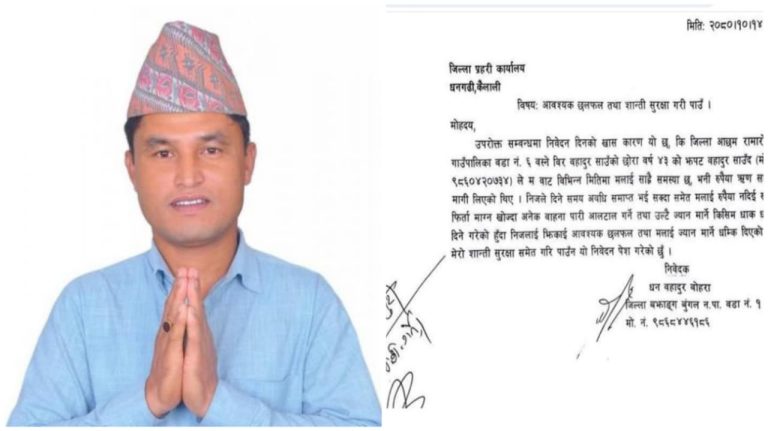 मिति: २०८०।१०।१४
जिल्ला प्रहरी कार्यालय
धनगढी,कैलाली
विषय: आवश्यक छलफल तथा शान्ती सुरक्षा गरी पाउँ ।
मोहदय,
उपरोक्त सम्वन्धमा निवेदन दिनको खास कारण यो छ, कि जिल्ला आछाम रामारो
गाउँपालिका वडा नं. ६ वस्ने विर वहादुर साउँको छोरा वर्ष ४३ को झपट वहादुर साउँद (मो
९८६०४२०७३४) ले म वाट विभिन्न मितिमा मलाई साह्रै समस्या छ, भनी रुपैया ऋण स
मागी लिएको थिए । निजले दिने समय अवधि समाप्त भई सक्दा समेत मलाई रुपैया नदिई र
फिर्ता माग्न खोज्दा अनेक वाहना पारी आलटाल गर्ने तथा उल्टै ज्यान मार्ने किसिम धाक ध
दिने गरेको हुँदा निजलाई झिकाई आवश्यक छलफल तथा मलाई ज्यान मार्ने धम्कि दिएको
मेरो शान्ती सुरक्षा समेत गरि पाउँन यो निवेदन पेश गरेको छुँ ।
निवेदक
धन वहादुर बोहरा
जिल्ला बझाङ्ग बुंगल न.पा. वडा नं. १
मो. नं. ९८६८४४६१८६